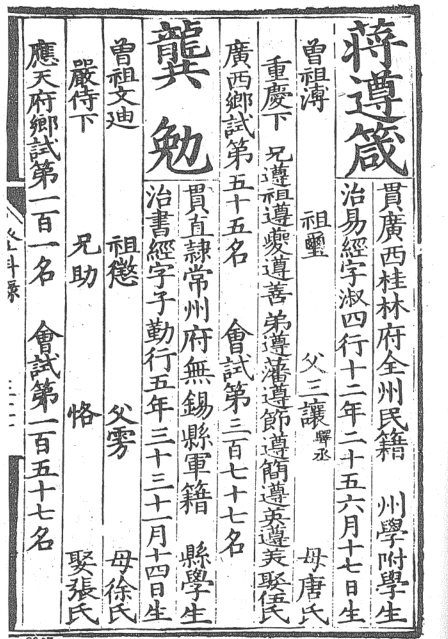 蔣遵箴
貫廣西桂林府全州民籍 州學附學生
治易經字淑四行十二年二十五六月十七日生
曾祖溥 祖璽 父三讓驛丞 母唐氏
重慶下 兄遵祖遵夔遵善 弟遵藩遵節遵簡遵英遵美 娶伍氏
廣西鄉試第五十五名 會試第三百七十七名
龔勉
貫直隷常州府無錫縣軍籍 縣學生
治書經字子勤行五年三十三十一月十四日生
曾祖文迪 祖懲 父雱 母徐氏
嚴侍下 兄助 恪 娶張氏
應天府鄉試第一百一名 會試第一百五十七名